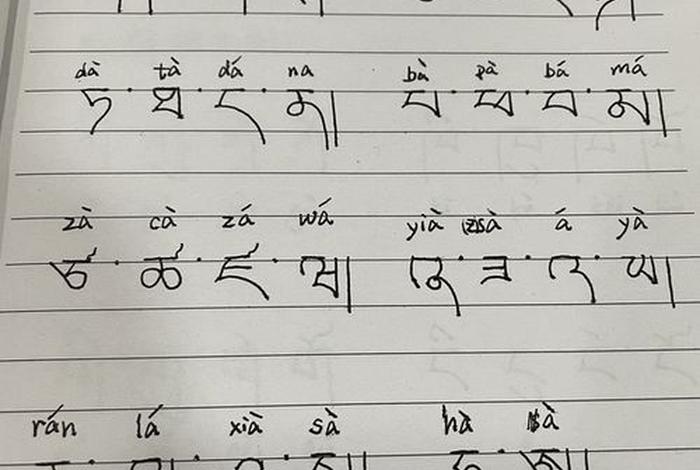 dà tà dá na bà pà bá má
ཏ་ཐ་ད་ན། པ་ཕ་བ་མ།
zà cà zá wá yià zsà á yà
ཙ་ཚ་ཛ་ཝ། ཞ་ཟ་འ་ཡ།
rán lá xià sà hà